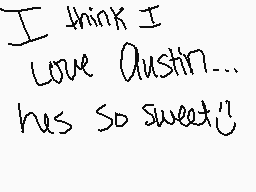 I think I
Love Austin...
hes so sweet :)